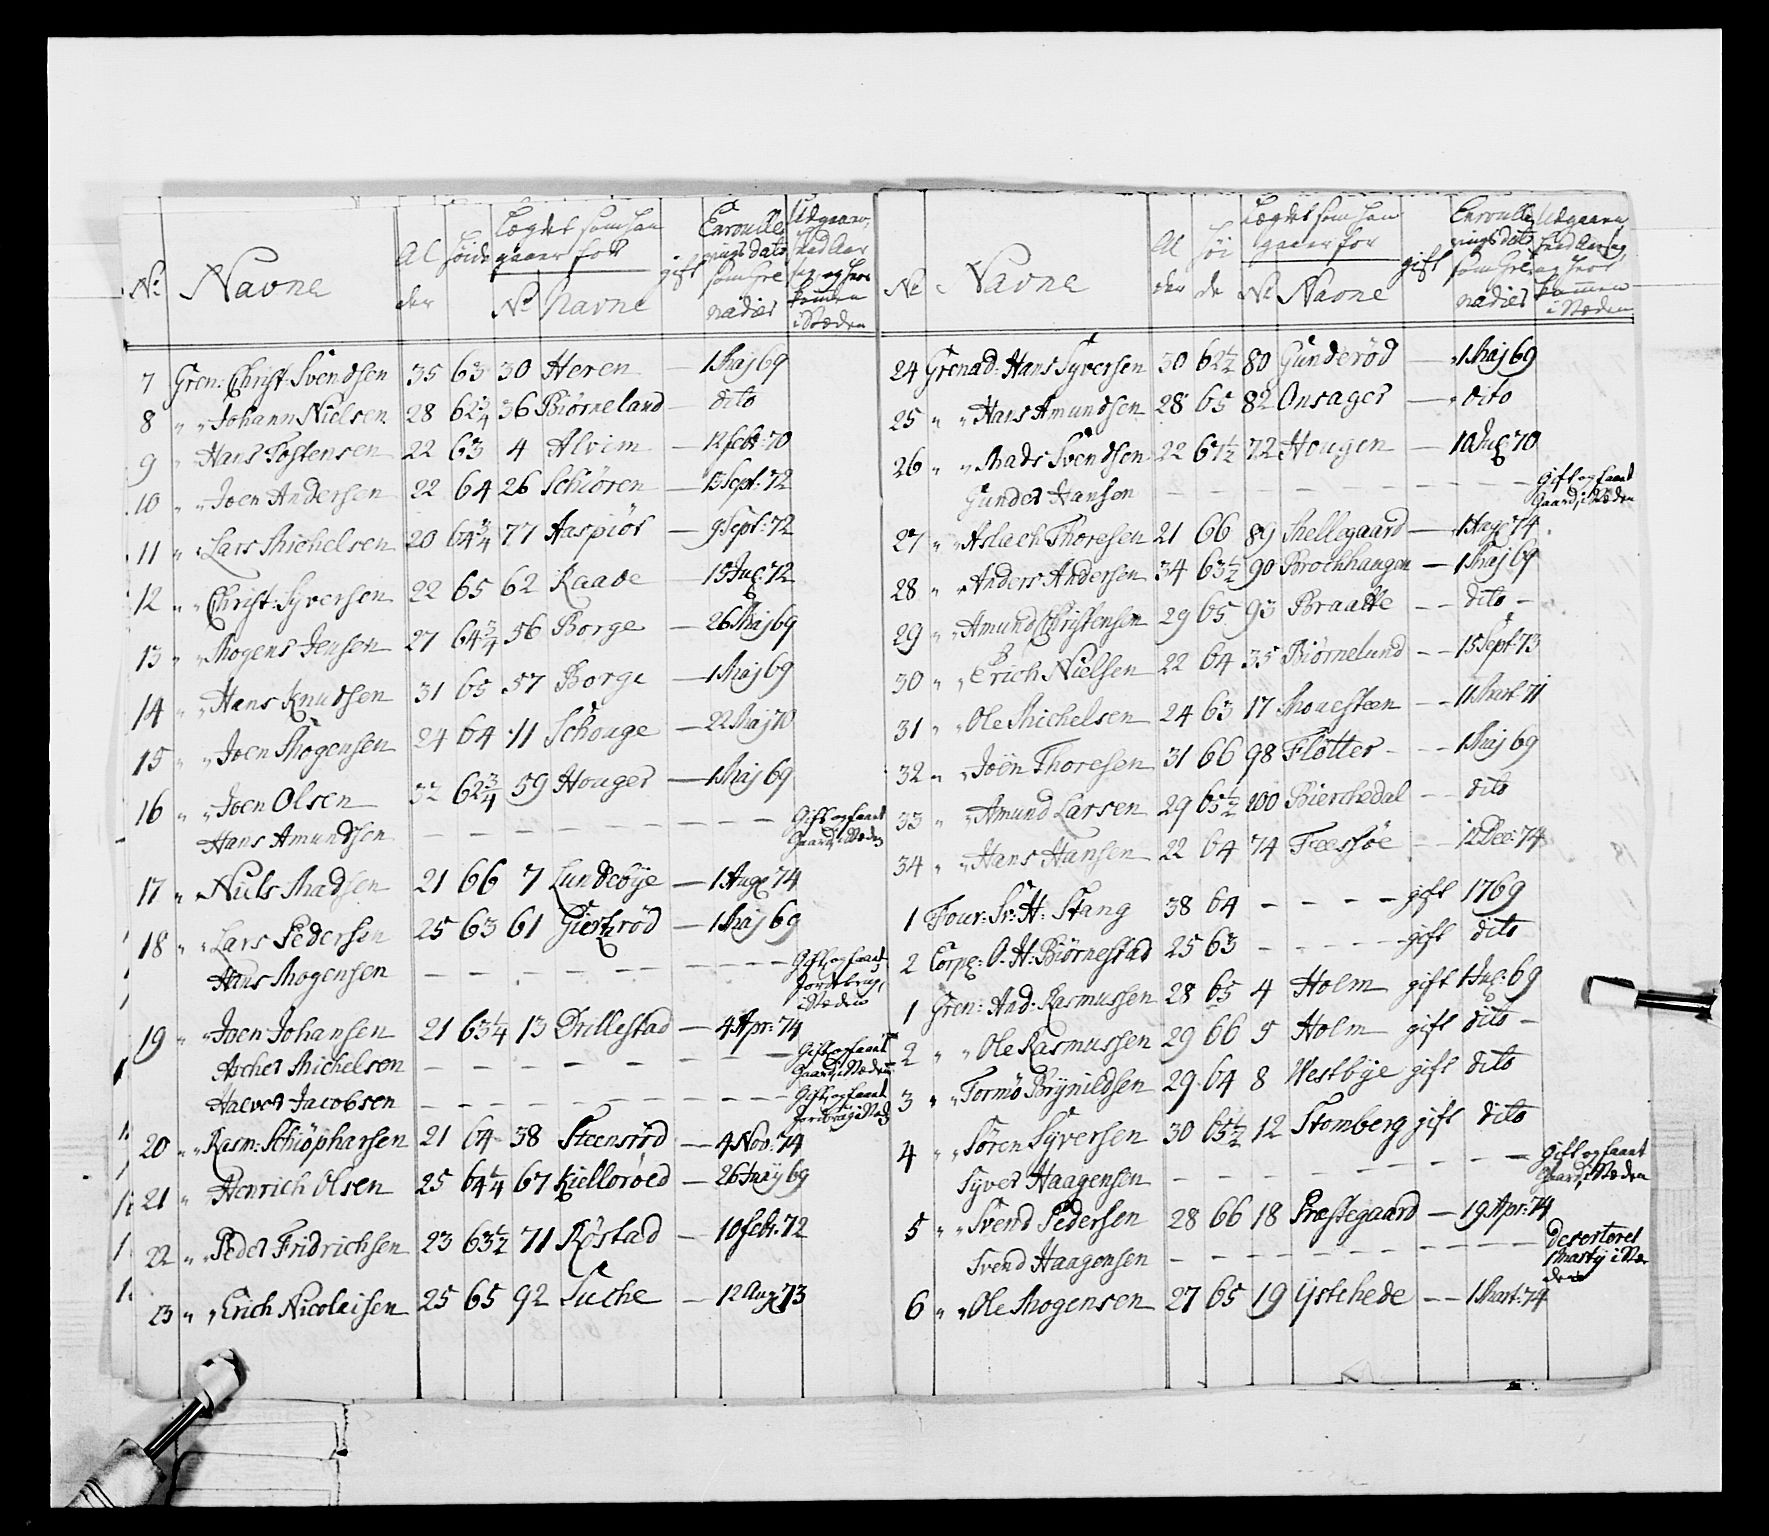 No Navne Al der Høide Lægdet som han gaaer for No Navne gift Enroullerings dato som Grenadier Udgaaen, Aarsag og hvor kommen i Steden
7 Gren: Christ: Svendsen 35 63 30 Heren — 1 Maj 69
8 " " Johann Nielsen 28 62 3/4 36 Biørneland — dito
9 " Hans Tostensen 22 63 4 Alvim — 12 febr: 70
10 " " Joen Andersen 22 64 26 Schiøren — 15 Sept: 72
11 " Lars Michelsen 20 64 3/4 77 Haspiør — 9 Sept: 72
12 " " Christ: Syversen 22 65 62 Raade — 15 Jul: 72
13 " " Mogens Jensen 27 64 3/4 56 Borge — 26 Maj 69
14 " " Hans Knudsen 31 65 57 Borge — 1 Maj 69
15 " " Joen Mogensen 24 64 11 Schouge — 22 Maj 70
16 " " Joen Olsen 32 62 3/4 59 Houger — 1 Maj 69
Hans Amundsen — — — — — — — — Gift og faaet Gaard, i Steden
17 " Niels Madsen 21 66 7 Lundebye — 1 Aug: 74
18 " " Lars Pedersen 25 63 61 Giertzrød — 1 Maj 69
Hans Mogensen — — — — — — — — Gift og faaet Jordbrug, i Steden
19 " " Joen Johansen 21 63 1/4 13 Drillestad — 4 Apr: 74
Asches Michelsen — — — — — — — — Gift og faaet Gaard, i Steden
Halvor Jacobsen — — — — — — — — Gift og faaet Jordbrug i Sted
20 " " Rasm: Schiøpharsen 21 64 38 Steensrød — 4 Nov: 74
21 " Henrich Olsen 25 64 1/4 67 Kiellerøed — 26 Maij 69
22 " " Peder Fridrichsen 23 63 1/2 71 Røstad — 10 febr: 72
23 " " Erich Nicolaisen 25 65 92 Suche — 12 Aug: 73
No Navne Al der Høi de Lægdet som han gaaer for No Navne gift Enroullerings dato som Grenadier Udgaaen, Aarsag og hvor kommen i Steden
24 Grenad: Hans Syversen 30 62 1/2 80 Gunderød — 1 Maj 69
25 " " Hans Amundsen 28 65 82 Onsager — dito
26 " " Mads Svendsen 22 67 1/2 72 Hougen — 10 Jul: 70
Gunder Hansen — — — — — — — — Gift og faaet Gaard, i Steden
27 " " Aslach Thoresen 21 66 89 Mellegaard — 1 Aug: 74
28 " " Anders Andersen 34 63 1/2 90 Brochhaugen — 1 Maj 69
29 " " Amund Christensen 29 65 93 Braatte — — dito —
30 " " Erich Nielsen 22 64 35 Biørnelund — — 15 Sept: 73
31 " " Ole Michelsen 24 63 17 Mouesteen — — 11 Mart: 71
32 " " Joën Thoresen 31 66 98 Fløtter — — 1 Maj 69
33 " " Amund Larsen 29 65 1/2 100 Bierchedal — — dito
34 " " Hans Hansen 22 64 74 Feesføe — — 12 Dec: 74
1 Four: Sr: H: Stang 38 64 — — — — gift 1769
2 Corp: O. H: Biørnestad 25 63 — — — — gift dito
1 Gren: And: Rasmussen 28 65 4 Holm gift 1 Jul: 69
2 " " Ole Rasmussen 29 66 5 Holm gift dito —
3 " " Tormo Brynildsen 29 64 8 Westbye gift dito
4 " " Søren Syversen 30 65 1/2 12 Stomberg gift dito
Syver Haagensen — — — — — — — — Gift og faaet Gaard, i Steden
5 " " Svend Pedersen 28 66 18 Præstegaard — 19 Apr: 74
Svend Haagensen — — — — — — — — deserteret
6 " " Ole Mogensen 27 65 19 Ystehede — — 1 Mart: 74